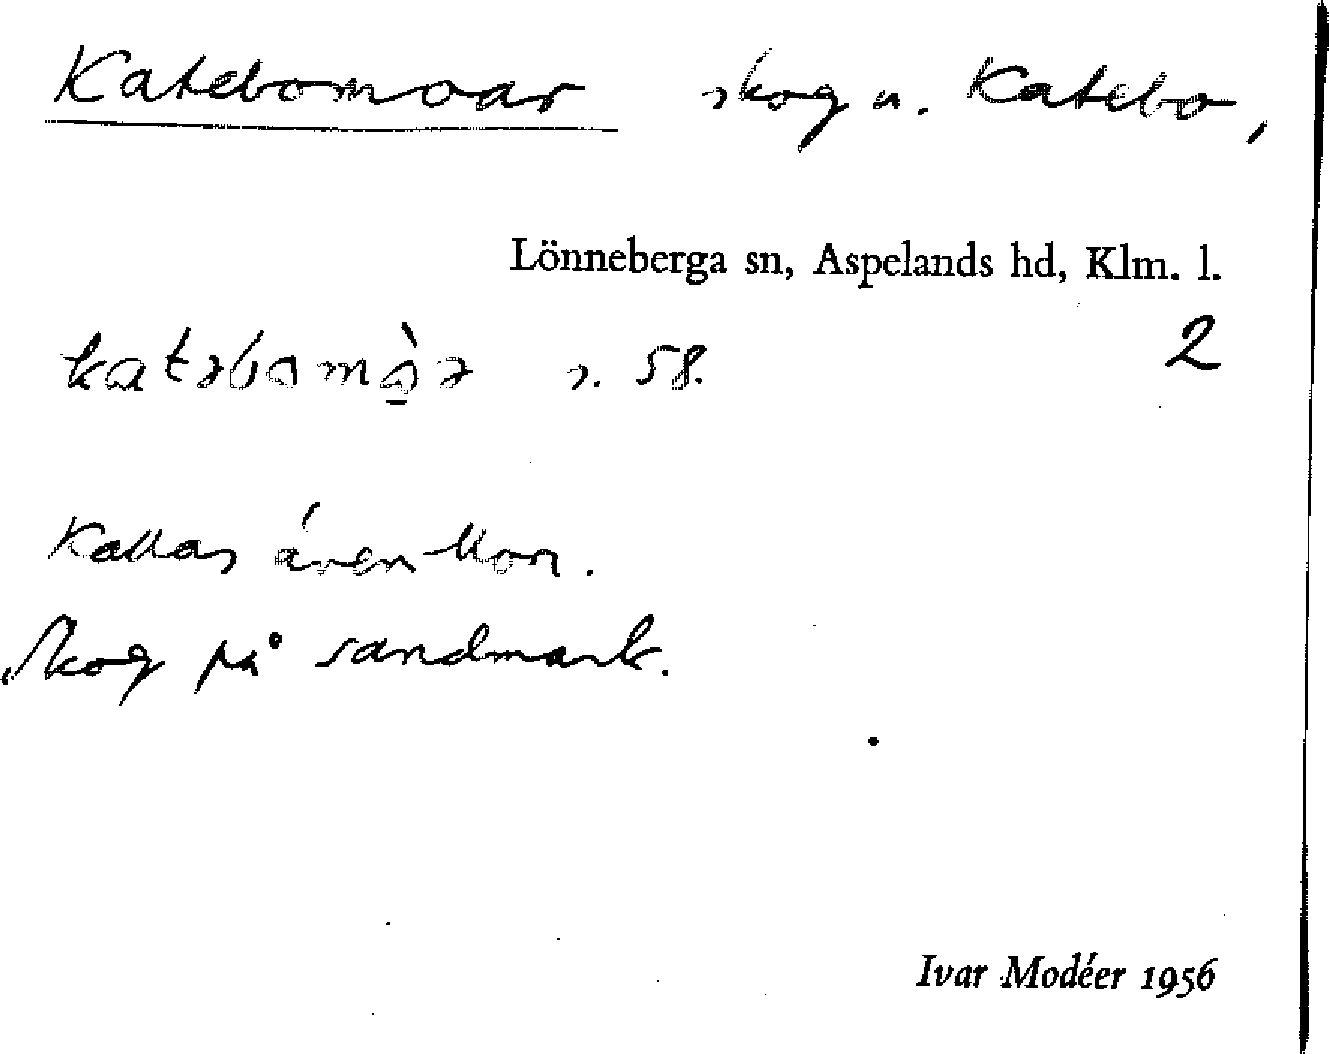 Katebomoar skog u. Katebo,
Lönneberga sn, Aspelands hd, Klm. l.
katəbomò̱ə s. 58. 2
Kallas även Mon.
Skog på sandmark.
Ivar Modéer 1956